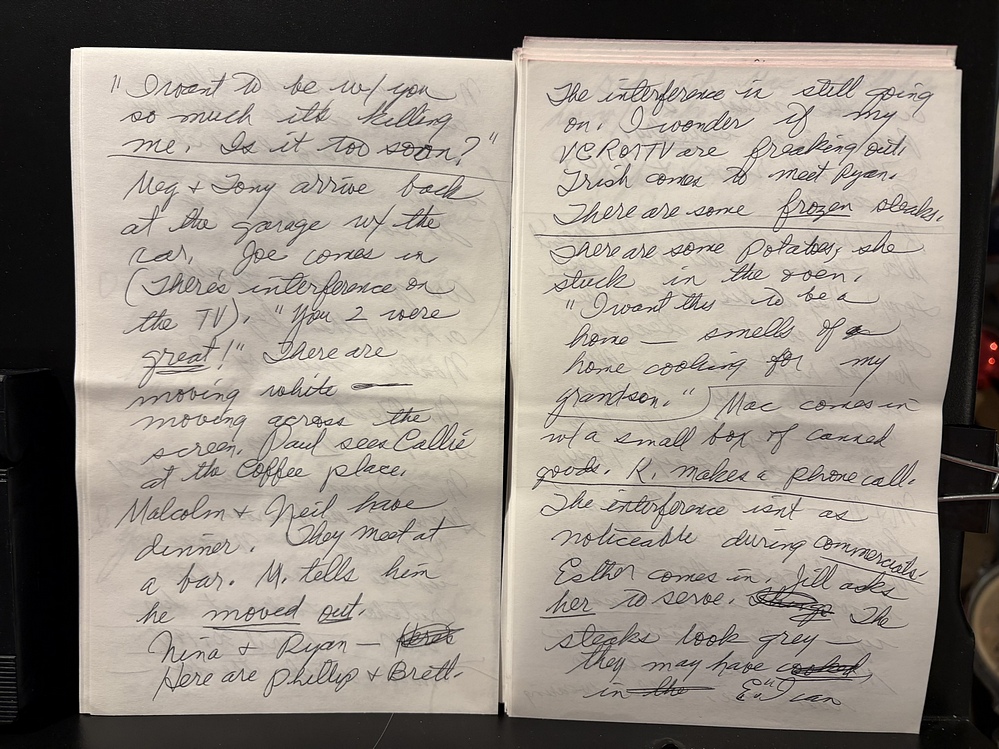 "I want to be w/ you
so much it's killing
me. Is it too soon?"
Meg + Tony arrive back
at the garage w/ the
car. Joe comes in
(There's interference on
the TV). "You 2 were
great!" There are
moving white
moving across the
screen. Paul sees Callie
at the Coffee place.
Malcolm + Neil have
dinner. They meet at
a bar. M. tells him
he moved out.
Nina + Ryan —
Here are Phillip + Brett.
The interference is still going
on. I wonder if my
VCR or TV are freaking out.
Trish comes to meet Ryan.
There are some frozen steaks.
There are some potatoes, she
stuck in the oven.
"I want this to be a
home — smells of
home cooking for my
grandson." Mac comes in
w/ a small box of canned
goods. K. makes a phone call.
The interference isnt as
noticeable during commercials.
Esther comes in. Jill asks
her to serve. The
steaks look grey —
they may have cooked
in the E: "I can